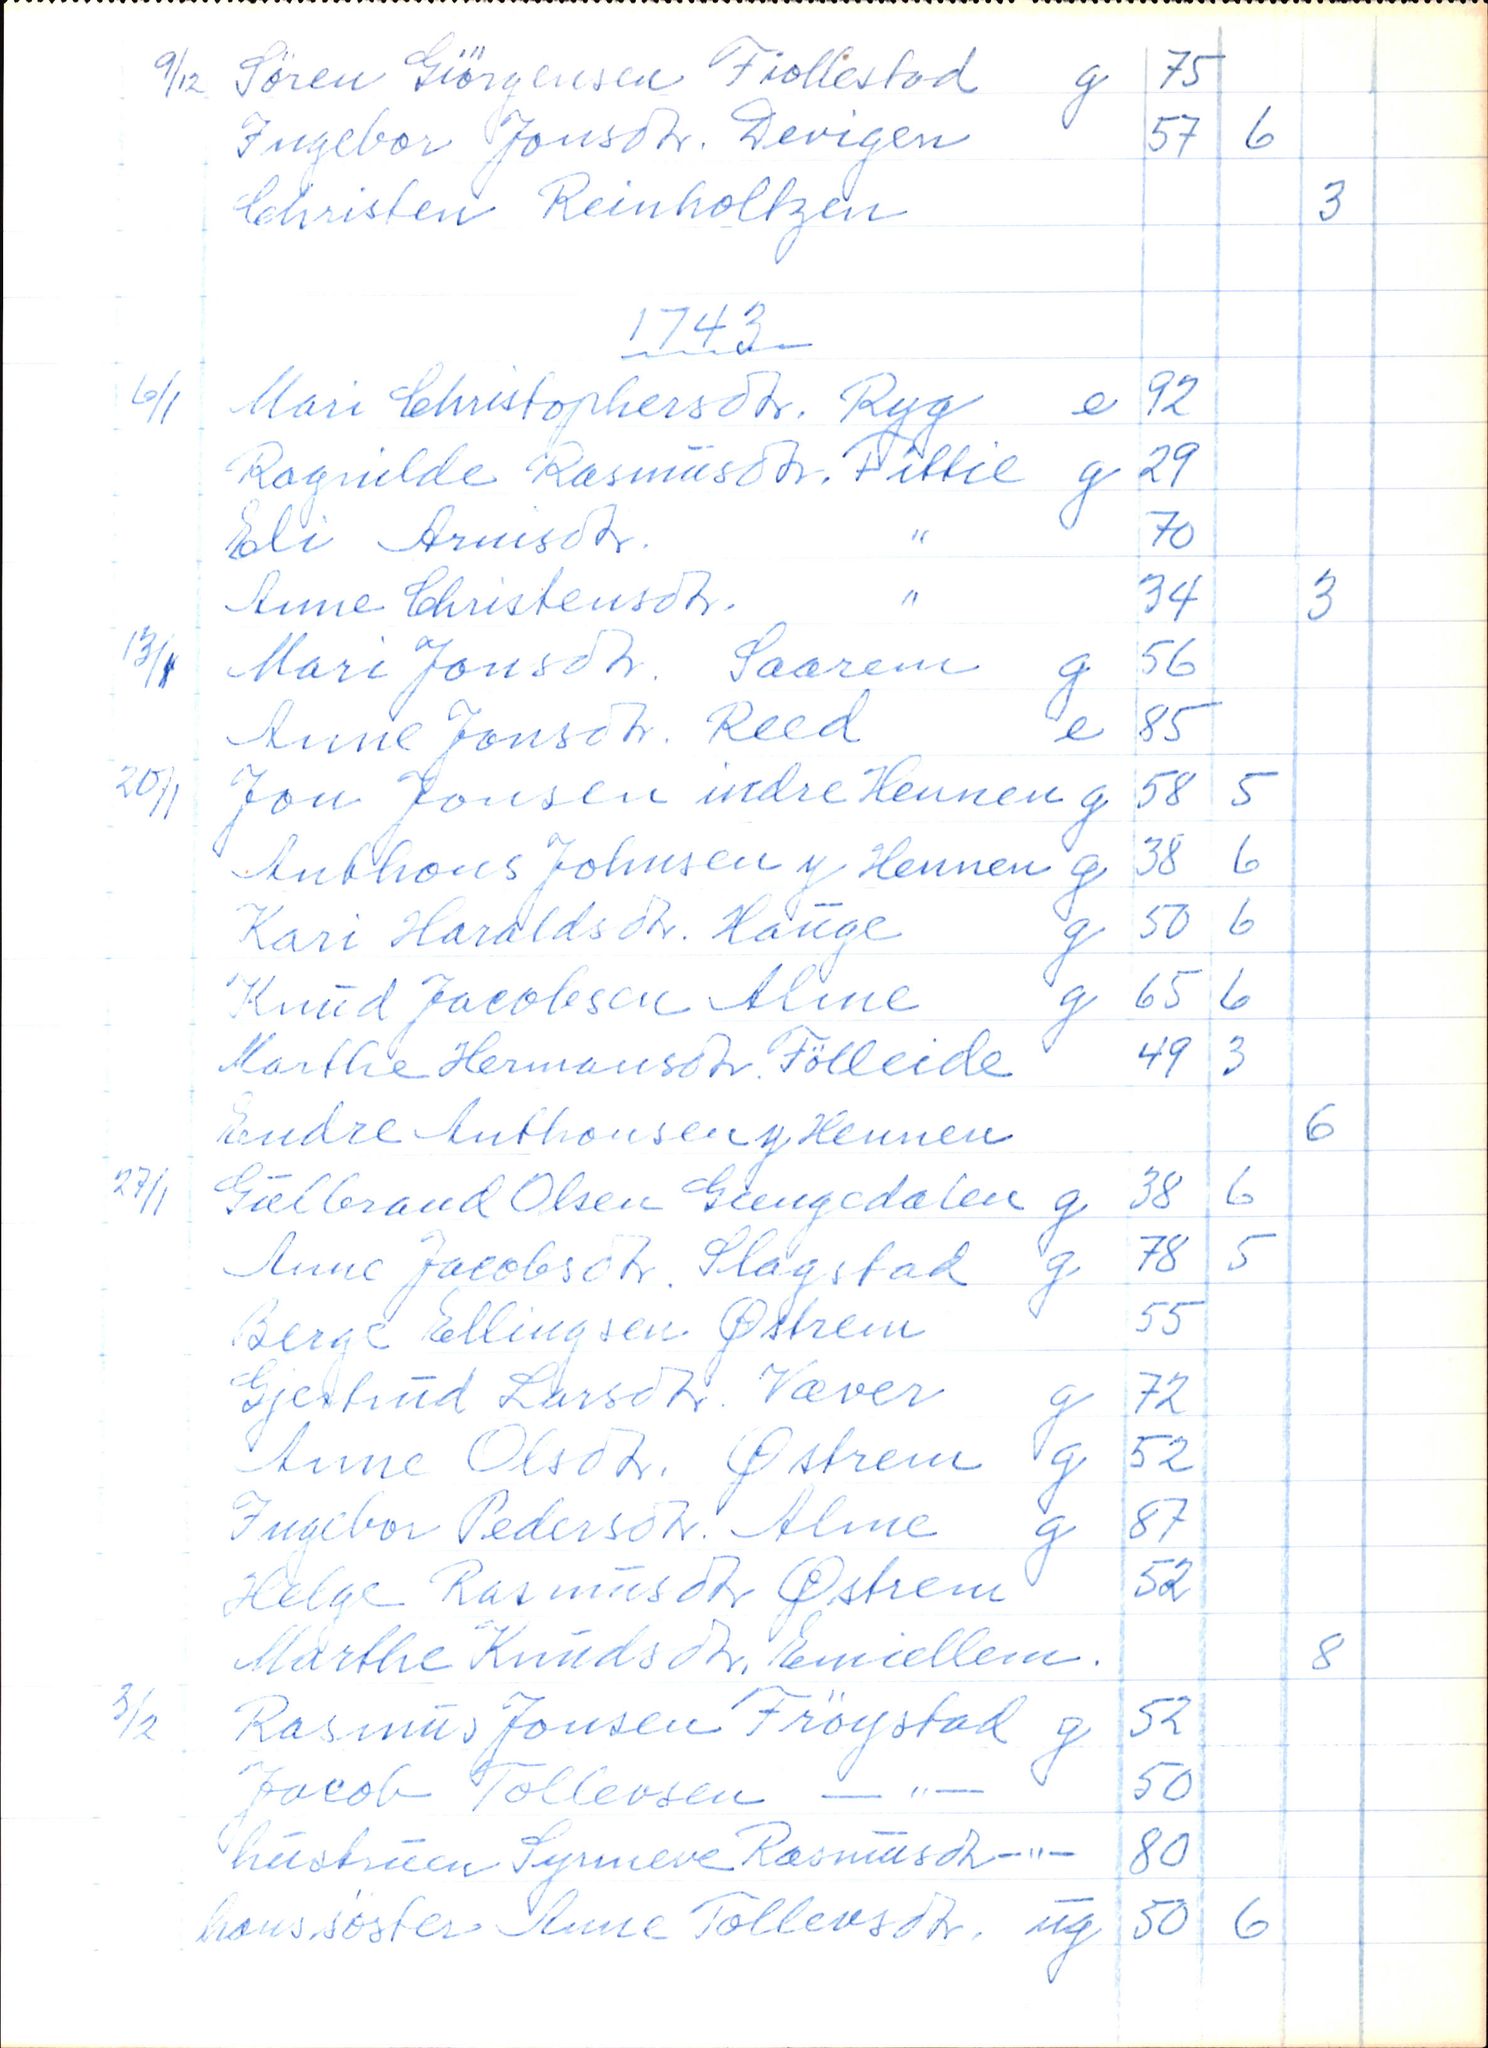 9/12 Sören Giörgensen Fiollestad g 75
Ingebor Jonsdtr. Devigen 57 6
Christen Reinholtzen 3
1743
6/1 Mari Christophersdtr. Ryg e 92
Ragnilde Rasmusdtr. Tittie g 29
Eli Arnisdtr. " 70
Anne Christensdtr. " 34 3
13/1 Mari Jonsdtr. Saarem g 56
Anne Jonsdtr. Reed e 85
20/1 Jon Jonsen indre Hennen g 58 5
Anthons Johnsen y Hennen g 38 6
Kari Haraldsdtr. Hauge g 50 6
Knud Jacobsen Alme g 65 6
Marthe Hermansdtr. Fölleide 49 3
Endre Anthonsen y Hennen 6
27/1 Gulbrand Olsen Grengedalen g 38 6
Anne Jacobsdtr. Slagstad g 78 5
Berge Ellingsen Østrem 55
Gjertrud Larsdtr. Væver g 72
Anne Olsdtr. Østrem g 52
Ingebor Pedersdtr. Alme g 87
Helge Rasmusdtr Østrem 52
Marthe Knudsdtr. Emiellem. 8
3/2 Rasmus Jonsen Fröystad g 52
Jacob Tollevsen — " — 50
hustruen Synneve Rasmusdtr — " — 80
hans söster Anne Tollevsdtr. ug 50 6